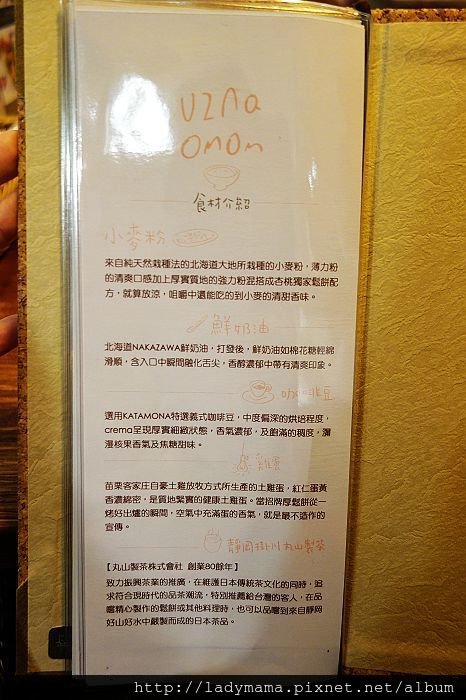 UZNa
OMOM
食材介紹
小麥粉
來自純天然栽種法的北海道大地所栽種的小麥粉，薄力粉
的清爽口感加上厚實質地的強力粉混搭成杏桃獨家鬆餅配
方，就算放涼，咀嚼中還能吃的到小麥的清甜香味。
鮮奶油
北海道NAKAZAWA鮮奶油，打發後，鮮奶油如棉花糖輕綿
滑順，含入口中瞬間融化舌尖，香醇濃郁中帶有清爽印象。
咖啡豆
選用KATAMONA特選義式咖啡豆，中度偏深的烘焙程度，
crema呈現厚實細緻狀態，香氣濃郁，及飽滿的稠度，瀰
漫核果香氣及焦糖甜味。
雞蛋
苗栗客家庄自豪土雞放牧方式所生產的土雞蛋，紅仁蛋黃
香濃綿密，是質地緊實的健康土雞蛋。當招牌厚鬆餅從一
烤好出爐的瞬間，空氣中充滿蛋的香氣，就是最不造作的
宣傳。
靜岡掛川丸山製茶
【丸山製茶株式會社 創業80餘年】
致力振興茶業的推廣，在維護日本傳統茶文化的同時，追
求符合現時代的品茶潮流，特別推薦給台灣的客人，在品
嚐精心製作的鬆餅或其他料理時，也可以品嚐到來自靜岡
好山好水中嚴製而成的日本茶品。
http://ladymama.pixnet.net/album